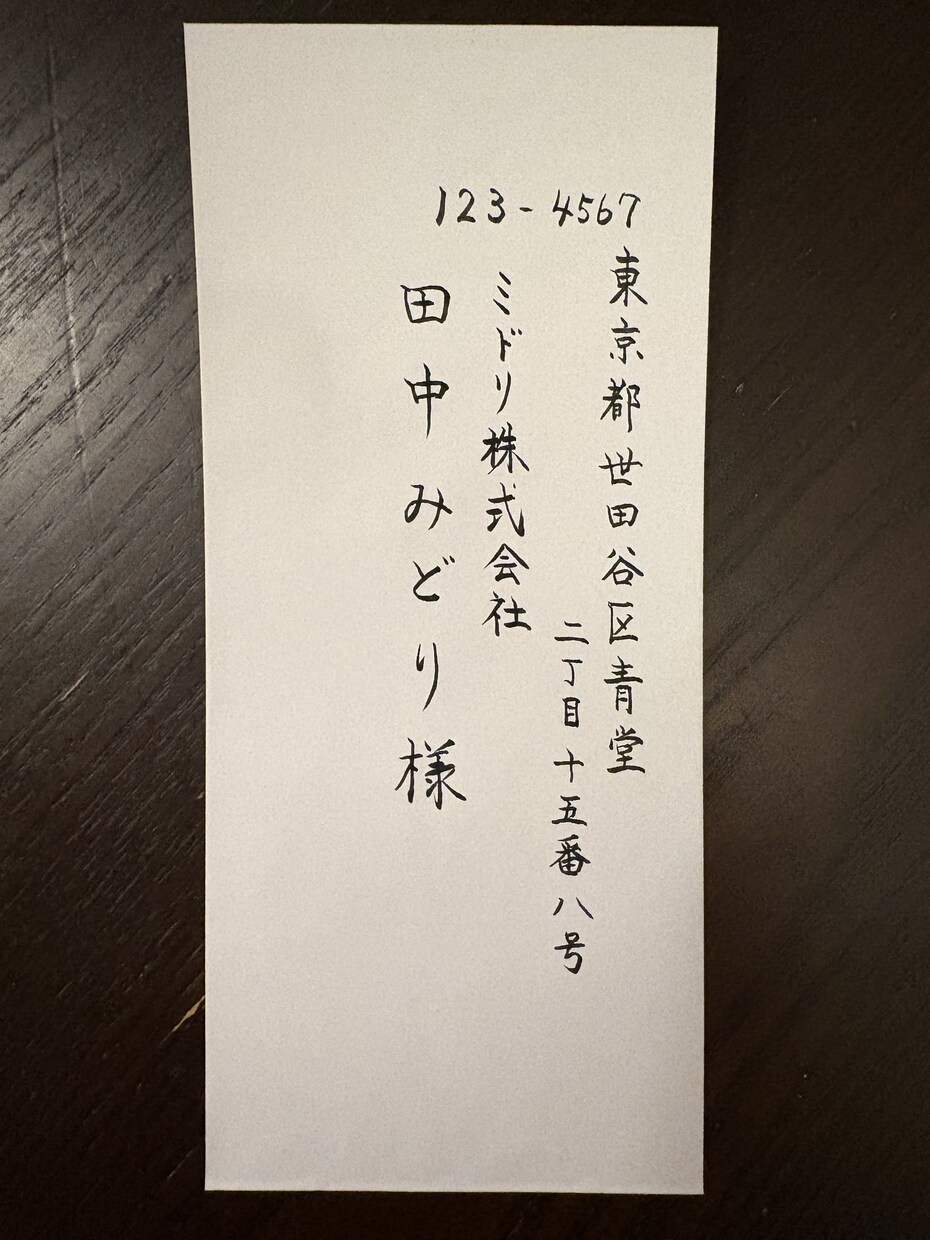 123-4567
東京都世田谷区青堂
二丁目十五番八号
ミドリ株式会社
田中みどり様